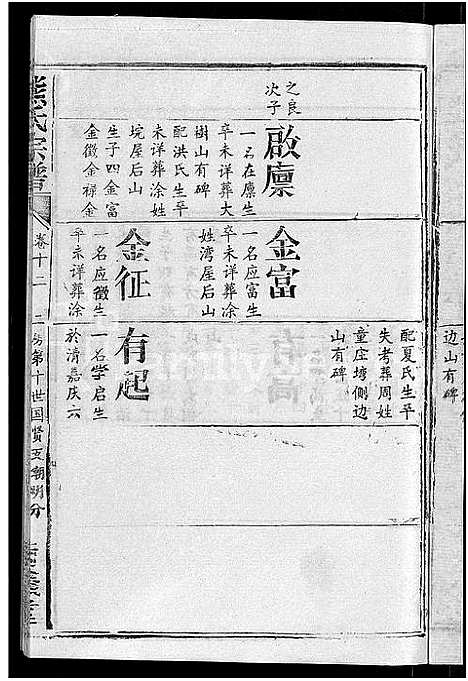 边山有碑
之良
次子
啟廪
一名在廪生
卒未详葬大
樹山有碑
配洪氏生平
未详葬涂姓
垸屋后山
生子四金富
金徵金禄金
金富
一名应富生
卒未详葬涂
姓湾屋后山
金征
一名应徵生
卒未详葬涂
配夏氏生平
失考葬周姓
童庄塆侧边
山有碑
有起
一名学启生
於清嘉庆六
熊氏宗譜
卷十二
房第十世国贤